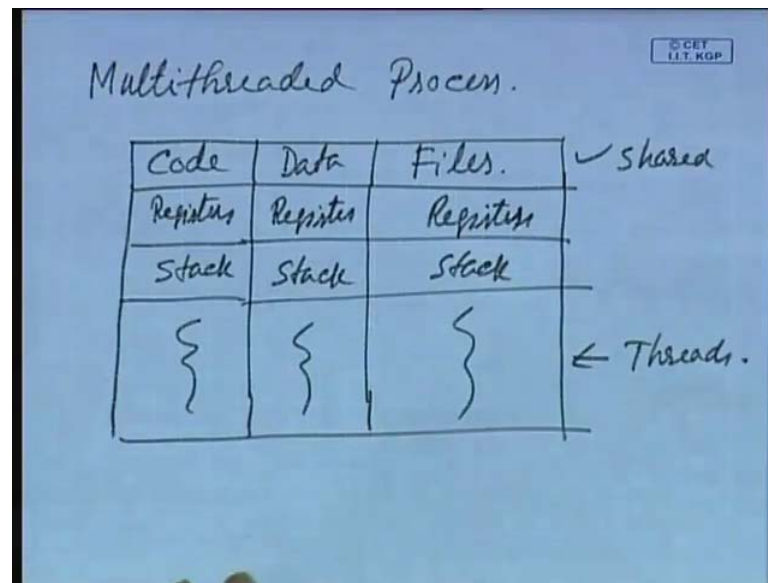 © CET
I.I.T. KGP
Multithreaded Process.
Code Data Files. ✓ Shared
Registers Register Registers
Stack Stack Stack
← Threads.